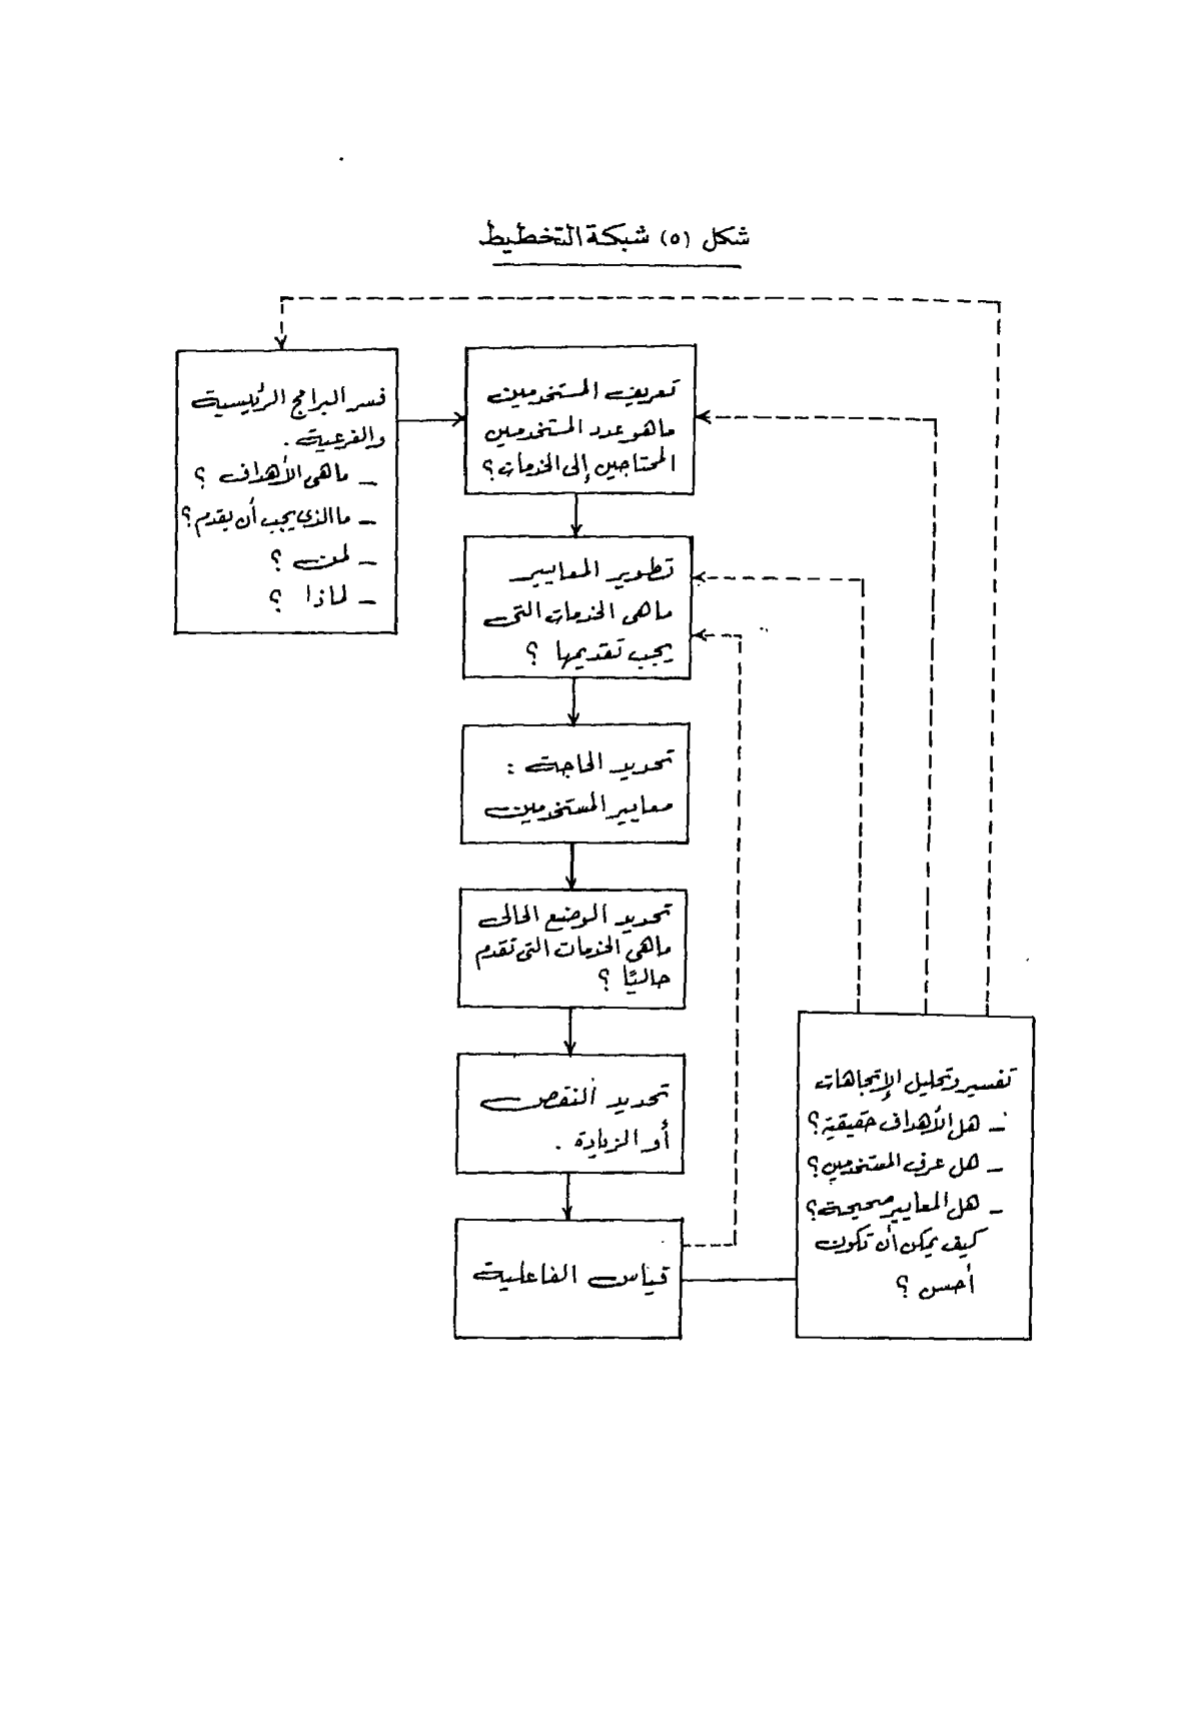 شكل (٥) شبكة التخطيط
فسر البرامج الرئيسية
والفرعية .
ـ ما هى الأهداف ؟
ـ ما الذى يجب أن يقدم ؟
ـ لمن ؟
ـ لماذا ؟
تعريف المستخدمين
ما هو عدد المستخدمين
المحتاجين إلى الخدمات ؟
تطوير المعايير
ما هى الخدمات التى
يجب تقديمها ؟
تحديد الحاجة :
معايير المستخدمين
تحديد الوضع الحالى
ما هى الخدمات التى تقدم
حاليًا ؟
تحديد النقص
أو الزيادة .
قياس الفاعلية
تفسير وتحليل الإتجاهات
ـ هل الأهداف حقيقية ؟
ـ هل عرف المستخدمين ؟
ـ هل المعايير صحيحة ؟
كيف يمكن أن تكون
أحسن ؟